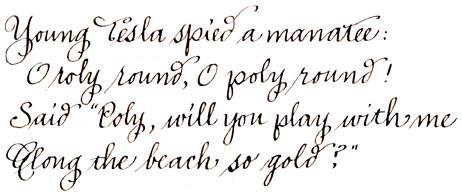 Young Tesla spied a manatee:
O roly round, O poly round!
Said "Poly, will you play with me
Along the beach so gold?"